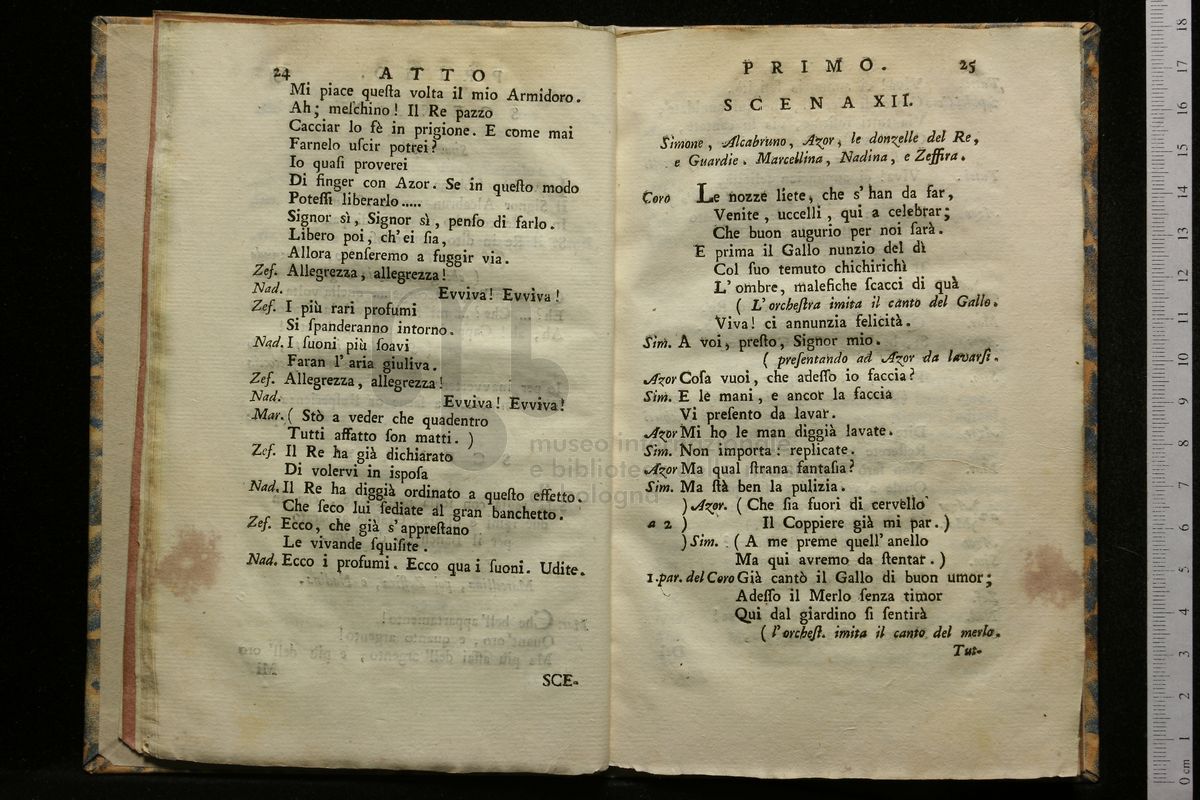 24 ATTO
Mi piace queſta volta il mio Armidoro.
Ah; meſchino! Il Re pazzo
Cacciar lo fè in prigione. E come mai
Farnelo uſcir potrei?
Io quaſi proverei
Di finger con Azor. Se in queſto modo
Poteſſi liberarlo.....
Signor sì, Signor sì, penſo di farlo.
Libero poi, ch'ei ſia,
Allora penſeremo a fuggir via.
Zef. Allegrezza, allegrezza!
Nad. Evviva! Evviva!
Zef. I più rari profumi
Si ſpanderanno intorno.
Nad. I ſuoni più ſoavi
Faran l'aria giuliva.
Zef. Allegrezza, allegrezza!
Nad. Evviva! Evviva!
Mar. ( Stò a veder che quadentro
Tutti affatto ſon matti. )
Zef. Il Re ha già dichiarato
Di volervi in iſpoſa
Nad. Il Re ha diggià ordinato a queſto effetto.
Che ſeco lui ſediate al gran banchetto.
Zef. Ecco, che già s'appreſtano
Le vivande ſquiſite.
Nad. Ecco i profumi. Ecco qua i ſuoni. Udite.
SCE-
PRIMO. 25
SCENA XII.
Simone, Alcabruno, Azor, le donzelle del Re,
e Guardie. Marcellina, Nadina, e Zeffira.
Coro Le nozze liete, che s'han da far,
Venite, uccelli, qui a celebrar;
Che buon augurio per noi ſarà.
E prima il Gallo nunzio del dì
Col ſuo temuto chichirichì
L'ombre, malefiche ſcacci di quà
( L'orcheſtra imita il canto del Gallo.
Viva! ci annunzia felicità.
Sim. A voi, preſto, Signor mio.
( preſentando ad Azor da lavarſi.
Azor Coſa vuoi, che adeſſo io faccia?
Sim. E le mani, e ancor la faccia
Vi preſento da lavar.
Azor Mi ho le man diggià lavate.
Sim. Non importa: replicate.
Azor Ma qual ſtrana fantaſia?
Sim. Ma ſtà ben la pulizia.
) Azor. ( Che ſia fuori di cervello
a 2 ) Il Coppiere già mi par. )
) Sim. ( A me preme quell'anello
Ma qui avremo da ſtentar. )
1. par. del Coro Già cantò il Gallo di buon umor;
Adeſſo il Merlo ſenza timor
Qui dal giardino ſi ſentirà
( l'orcheſt. imita il canto del merlo.
Tut-
museo internazionale
e biblioteca
di bologna
18
17
16
15
14
13
12
11
10
9
8
7
6
5
4
3
2
1
0 cm